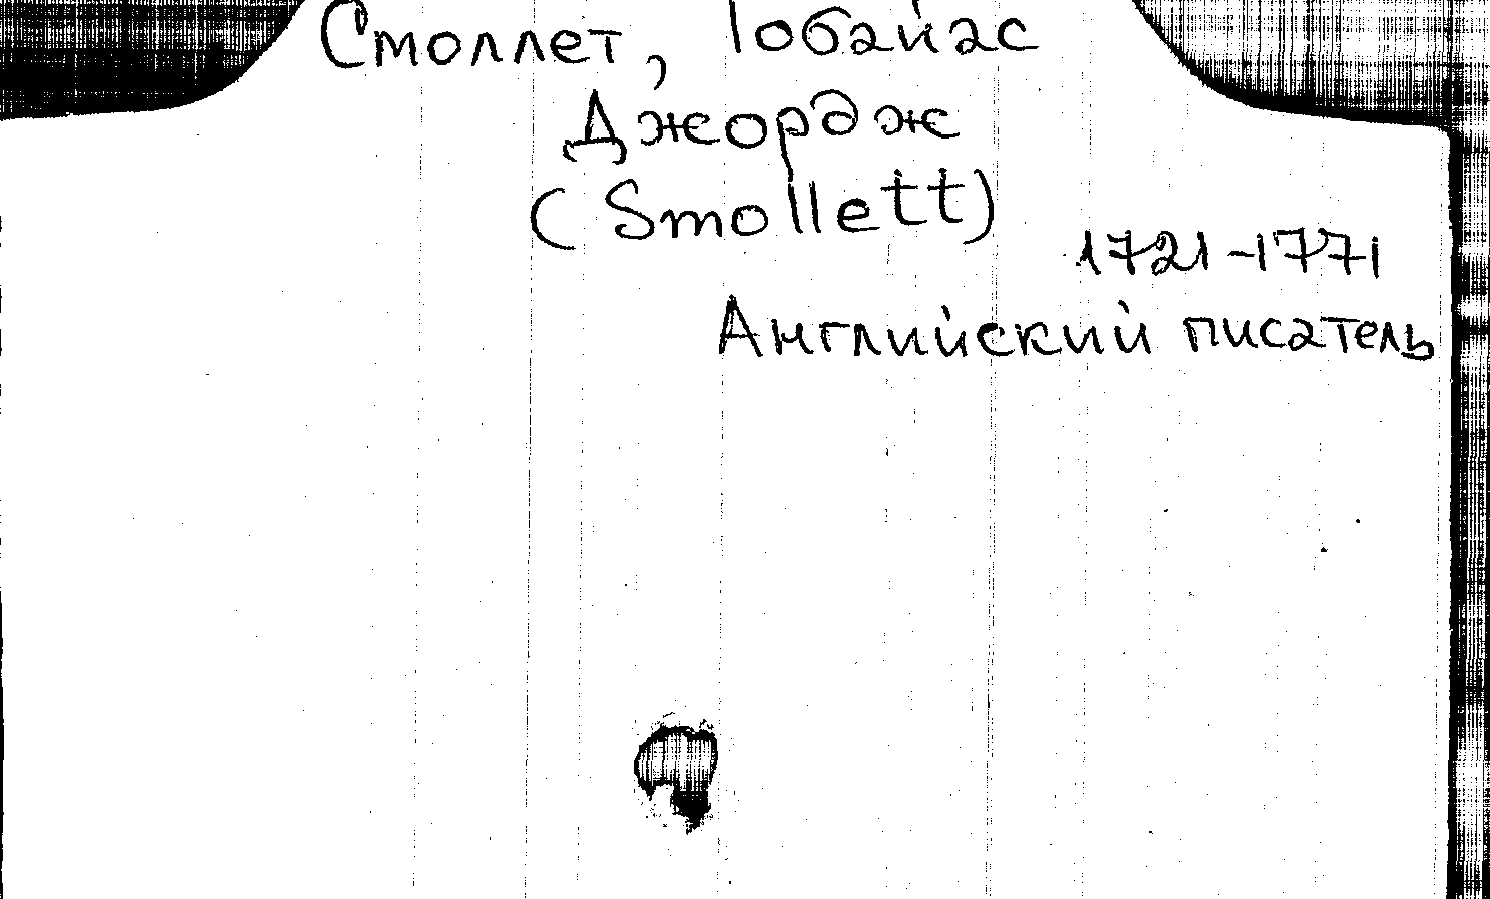 Смоллет, Тобайас
Джордж
(Smollett)
1721-1771
Английский писатель